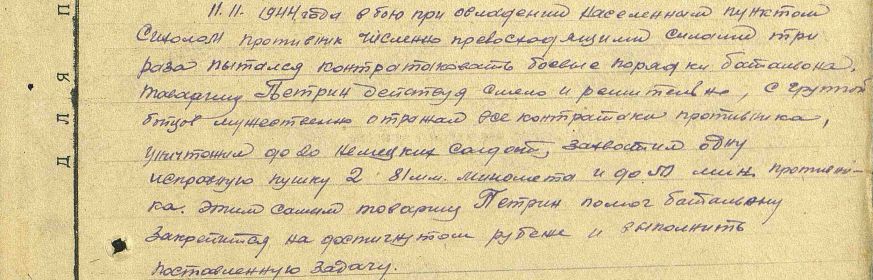 11.11. 1944 года в бою при овладении населенным пунктом
Сихолом противник численно превосходящими силами три
раза пытался контратаковать боевые порядки батальона.
Товарищ Петрин действуя смело и решительно, с группой
бойцов мужественно отражал все контратаки противника,
уничтожил до 20 немецких солдат, захватил одну
исправную пушку 2 81 мм. миномета и до 50 мин противни-
ка. Этим самым товарищ Петрин помог батальону
закрепится на достигнутом рубеже и выполнить
поставленную задачу.
ДЛЯ П